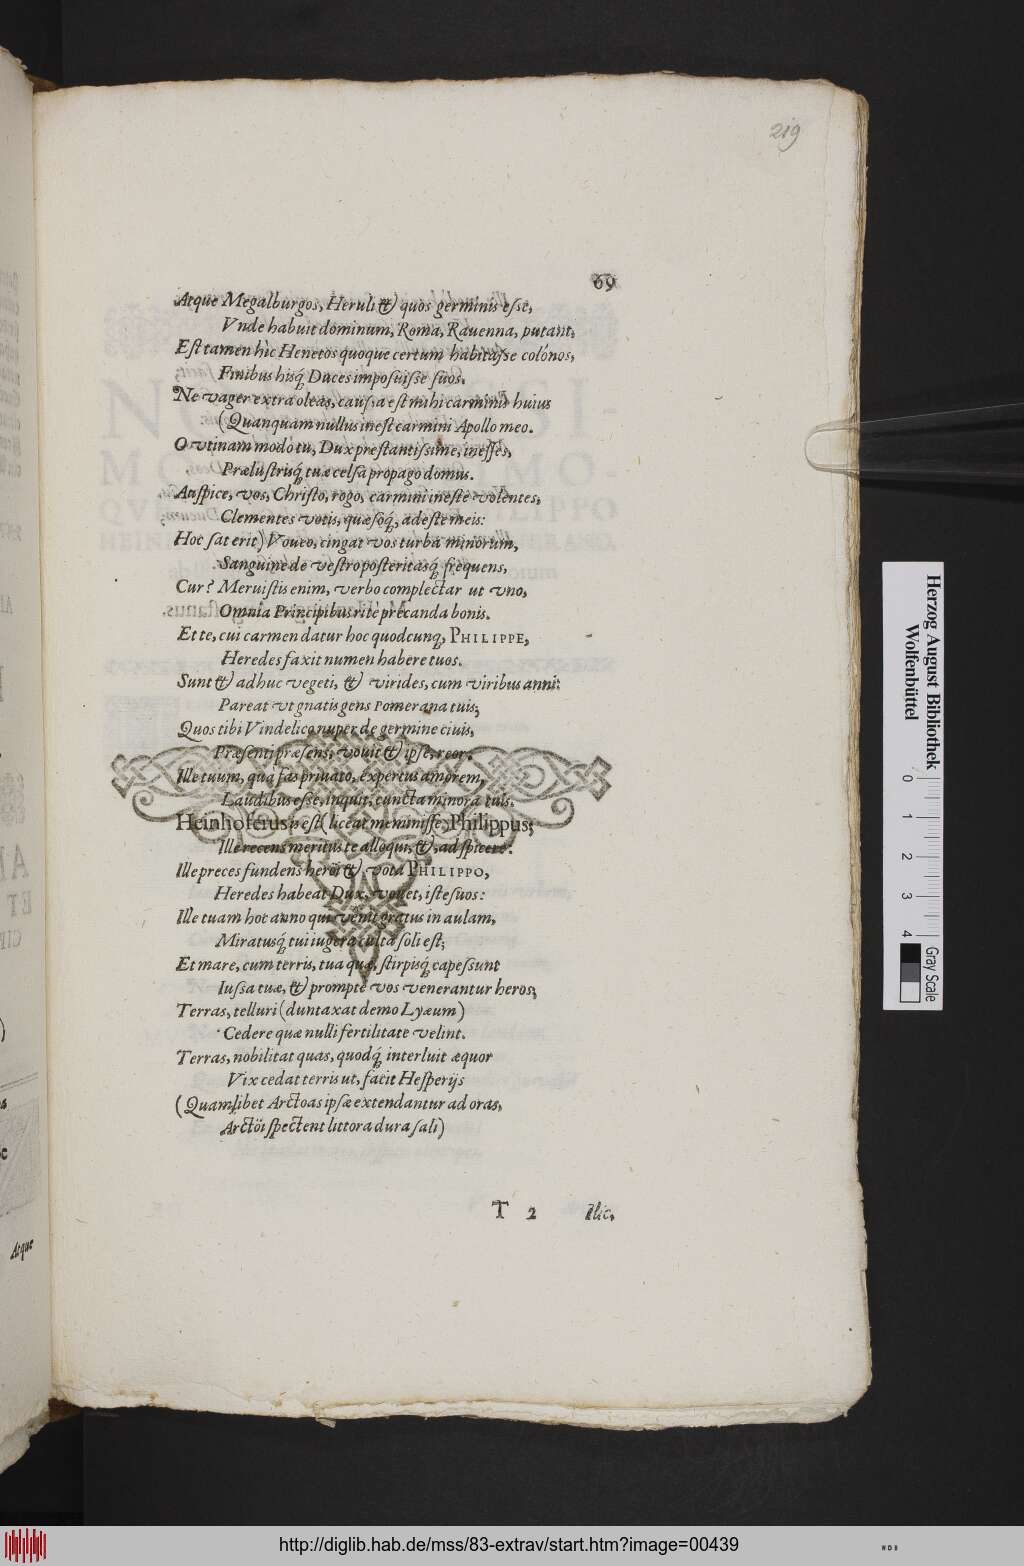 219
69
Atque Megalburgos, Heruli & quos germinis esse,
Vnde habuit dominum, Roma, Rauenna, putant,
Est tamen hìc Henetos quoque certum habitasse colónos,
Finibus hisq́ Duces imposuisse suos.
Ne vager extra oleas, caussa est mihi carminis huius
(Quanquam nullus inest carmini Apollo meo.
O vtinam modò tu, Dux prestantissime, inesses,
Prælustrisq́ tuæ celsa propago domus.
Auspice, vos, Christo, rogo, carmini ineste volentes,
Clementes votis, quæsoq́, adeste meis:
Hoc sat erit) Voueo, cingat vos turba minorum,
Sanguine de vestro posteritasq́ frequens,
Cur? Meruistis enim, verbo complectar ut vno,
Omnia Principibus rite precanda bonis.
Et te, cui carmen datur hoc quodcunq, PHILIPPE,
Heredes faxit numen habere tuos.
Sunt & adhuc vegeti, & virides, cum viribus anni:
Pareat vt gnatis gens Pomerana tuis;
Quos tibi Vindelico nuper de germine ciuis,
Præsenti præsens, vouit & ipse, reor.
Ille tuum, qua fas priuato, expertus amorem,
Laudibus esse, inquit, cuncta minora tuis.
Heinhoferus is est (liceat meminisse) Philippus;
Ille recens meritus te alloqui, &, adspicere.
Ille preces fundens heroi &, vota PHILIPPO,
Heredes habeat Dux, vouet, iste suos:
Ille tuam hoc anno qui venit gratus in aulam,
Miratusq́ tui iugera culta soli est;
Et mare, cum terris, tua quæ, stirpisq́ capessunt
Iussa tuæ, & prompte vos venerantur heros;
Terras, telluri (duntaxat demo Lyæum)
Cedere quæ nulli fertilitate velint.
Terras, nobilitat quas, quodq́ interluit æquor
Vix cedat terris ut, facit Hesperijs
(Quamlibet Arctoas ipsæ extendantur ad oras,
Arctöi spectent littora dura sali)
T 2 Illic,
Atque
Herzog August Bibliothek
Wolfenbüttel
0 1 2 3 4
Gray Scale
http://diglib.hab.de/mss/83-extrav/start.htm?image=00439